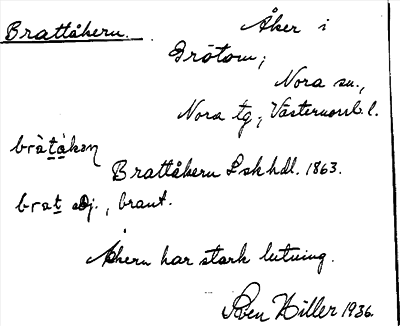 Brattåkern.
Åker i
Brötom;
Nora sn.,
Nora tg., Västernorrl. l.
bràtàkɐn
Brattåkern Lskhdl. 1863.
brat adj., brant.
Åkern har stark lutning.
Sven Hiller 1936.